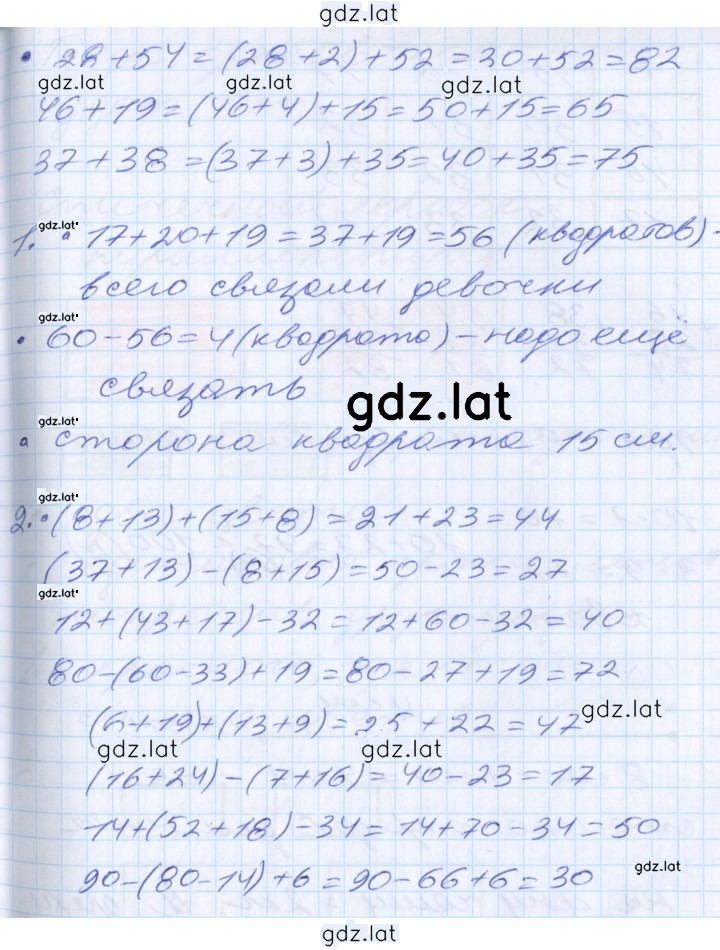 gdz.lat
• 28+54=(28+2)+52=30+52=82
gdz.lat gdz.lat gdz.lat
46+19=(46+4)+15=50+15=65
37+38=(37+3)+35=40+35=75
gdz.lat
1. • 17+20+19=37+19=56 (квадратов)-
всего связали девочки
gdz.lat
• 60-56=4(квадрата)-надо ещё
связать
gdz.lat
• сторона квадрата 15 см.
gdz.lat
2. • (8+13)+(15+8)=21+23=44
(37+13)-(8+15)=50-23=27
gdz.lat
12+(43+17)-32=12+60-32=40
80-(60-33)+19=80-27+19=72
(6+19)+(13+9)=25+22=47
gdz.lat
gdz.lat gdz.lat
(16+24)-(7+16)=40-23=17
14+(52+18)-34=14+70-34=50
gdz.lat
90-(80-14)+6=90-66+6=30
gdz.lat